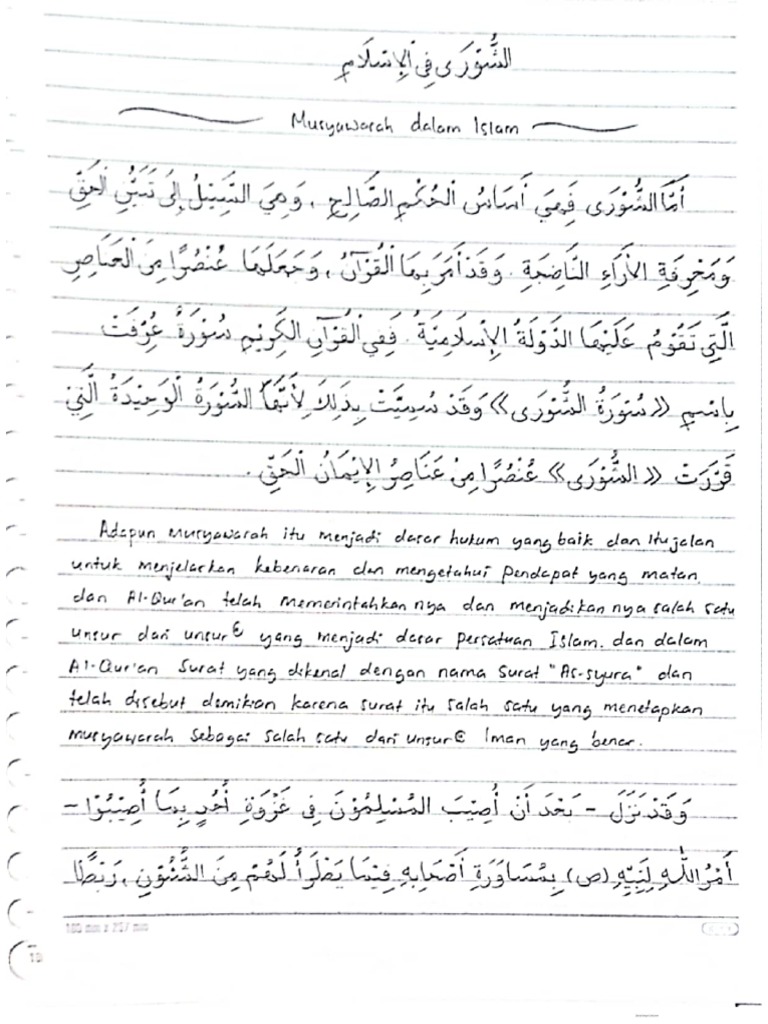 الشُّوْرَى فِي الإِسْلَامِ
Musyawarah dalam Islam
أَمَّا الشُّوْرَى فَهِيَ أَسَاسُ الْحُكْمِ الصَّالِحِ ، وَهِيَ السَّبِيْلُ إِلَى تَبَيُّنِ الْحَقِّ
وَمَعْرِفَةِ الأَرَاءِ النَّاضِجَةِ . وَقَدْ أَمَرَ بِهَا الْقُرْآنُ ، وَجَعَلَهَا عُنْصُرًا مِنَ الْعَنَاصِرِ
الَّتِي تَقُوْمُ عَلَيْهَا الدَّوْلَةُ الإِسْلَامِيَّةُ . فَفِي الْقُرْآنِ الكَرِيْمِ سُوْرَةٌ عُرِفَتْ
بِاسْمِ «سُوْرَةُ الشُّوْرَى» وَقَدْ سُمِّيَتْ بِذَلِكَ لِأَنَّهَا السُّوْرَةُ الْوَحِيْدَةُ الَّتِيْ
قَرَّرَتْ «الشُّوْرَى» عُنْصُرًا مِنْ عَنَاصِرُ الإِيْمَانُ الْحَقِّ .
Adapun musyawarah itu menjadi dasar hukum yang baik dan itu jalan
untuk menjelaskan kebenaran dan mengetahui pendapat yang matan,
dan Al-Qur'an telah memerintahkan nya dan menjadikan nya salah satu
unsur dari unsur² yang menjadi dasar persatuan Islam. dan dalam
Al-Qur'an surat yang dikenal dengan nama surat "As-syura" dan
telah disebut demikian karena surat itu salah satu yang menetapkan
musyawarah sebagai salah satu dari unsur² Iman yang benar.
وَقَدْ نَزَلَ - بَعْدَ أَنْ أُصِيْبَ المُسْلِمُوْنَ فِي غَزْوَةِ أُحُدٍ بِمَا أُصِيْبُوْا -
أَمْرُ اللهِ لِنَبِيِّهِ (ص) بِمُشَاوَرَةِ أَصْحَابِهِ فِيْمَا يَطْرَأُ لَهُمْ مِنَ الشُّئُوْنِ ، رَبْطًا